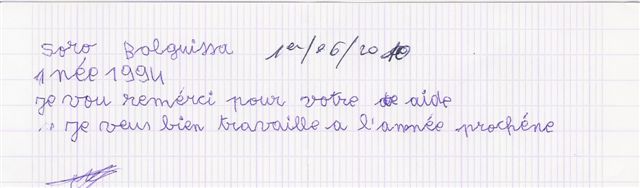 Soro Bolguissa 1er/06/2010
Née 1994
je vou remérci pour votre aide
je veus bien travaille a l'année prochéne